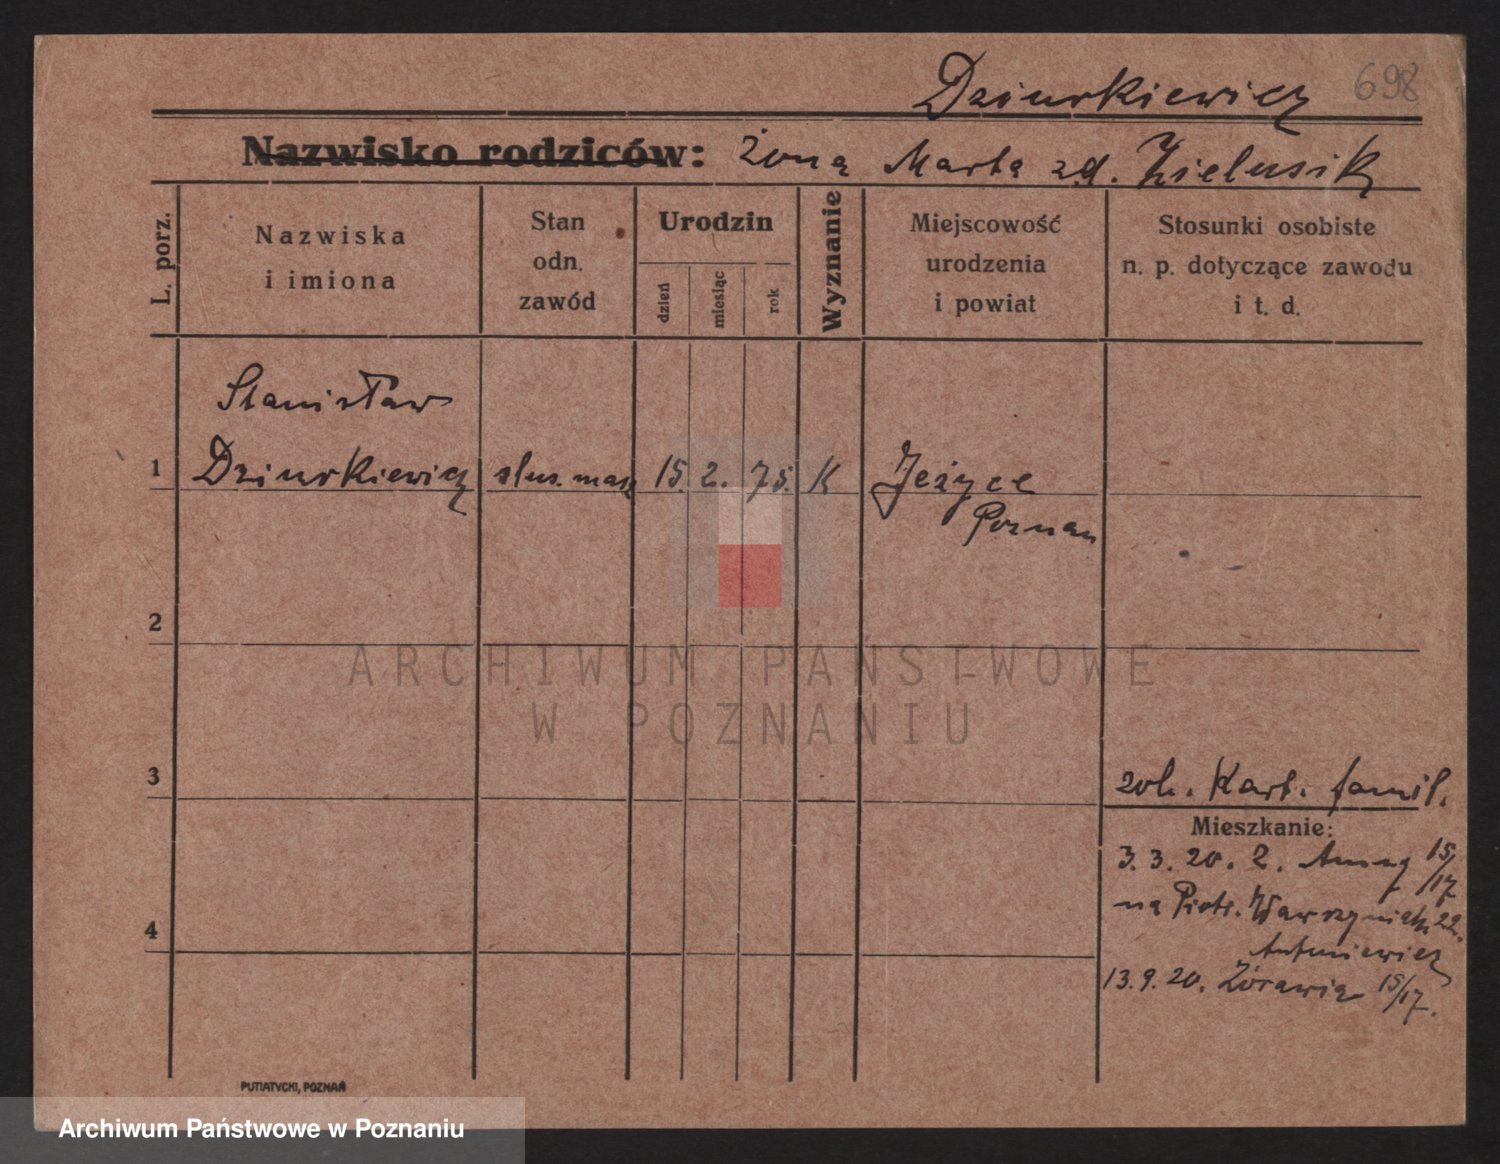 Dziurkiewicz 698
Nazwisko rodziców: żona Marta zd. Zielusik
L. porz.
Nazwiska
i imiona
Stan
odn.
zawód
Urodzin
dzień
miesiąc
rok
Wyznanie
Miejscowość
urodzenia
i powiat
Stosunki osobiste
n. p. dotyczące zawodu
i t. d.
Stanisław
1 Dziurkiewicz slus. masz 15. 2. 75. K Jeżyce
Poznan
2
ARCHIWUM PAŃSTWOWE
W POZNANIU
3
zob. Kart. famil.
Mieszkanie:
3. 3. 20. 15/17
na Piotr. Wawrzyniak 22.
4
Antoniewicz
13. 9. 20. Żórawia 15/17.
PUTIATYCKI, POZNAŃ
Archiwum Państwowe w Poznaniu